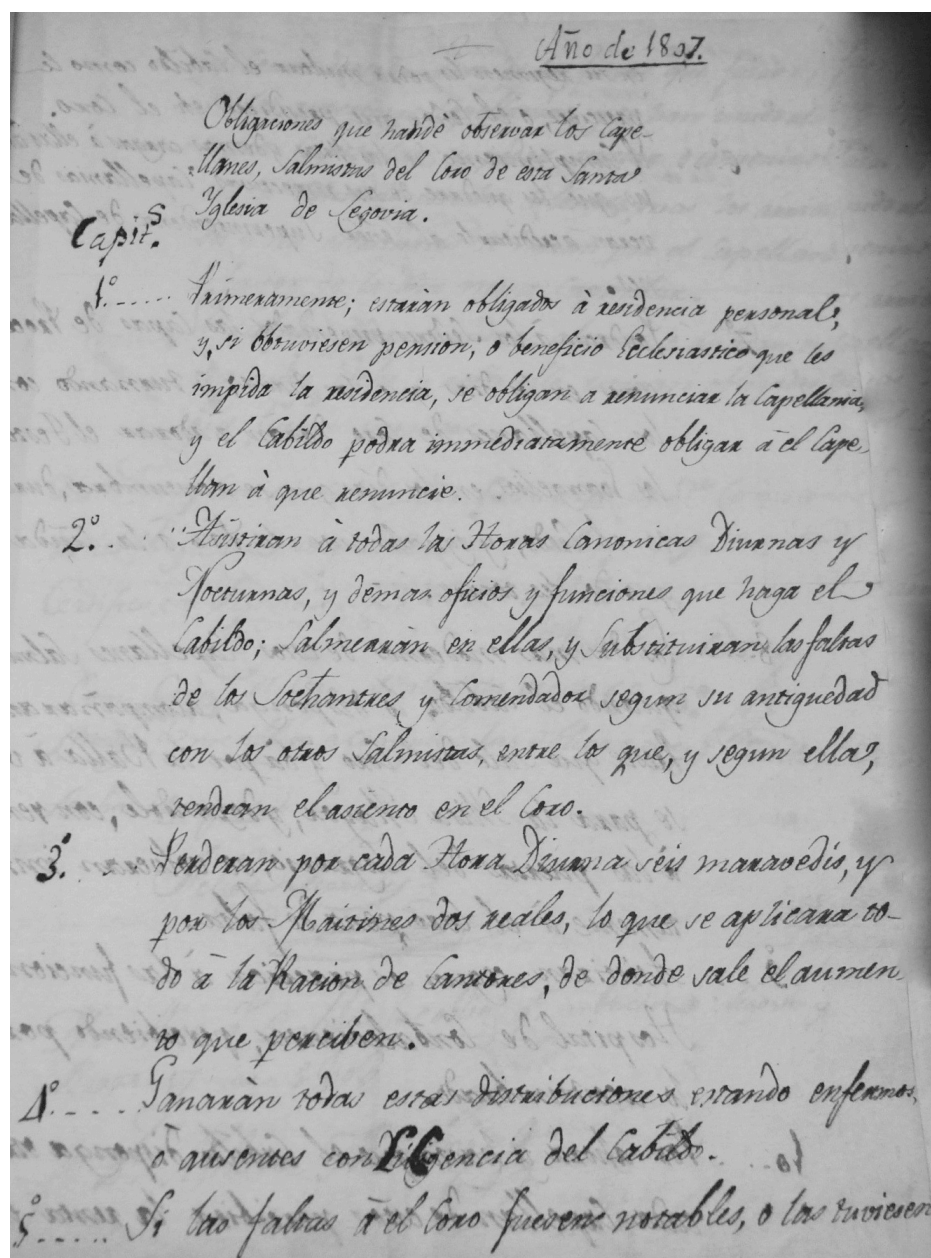 Año de 1807.
Obligaciones que hande observar los Cape-
llanes, Salmistas del Coro de esta Santa
Yglesia de Segovia.
Capit.s
1º..... Primeramente; estaràn obligados à residencia personal;
y, si obtuviesen pension, o beneficio Ecclesiastico que les
impida la residencia, se obligan a renunciar la Capellania,
y el Cabildo podra immediatamente obligar à el Cape-
llan à que renuncie.
2º... Assistiran à todas las Horas Canonicas Diurnas y
Nocturnas, y demas oficios y funciones que haga el
Cabildo; Salmearàn en ellas, y substituiran las faltas
de los Sochantres y Comendador segun su antiguedad
con los otros Salmistas, entre los que, y segun ella,
tendran el asiento en el Coro.
3º. Perderan por cada Hora Diurna seis maravedis, y
por los Maitines dos reales, lo que se aplicara to-
do à la Racion de Cantores, de donde sale el aumen-
to que perciben.
4º..... Ganaràn todas estas distribuciones estando enfermos,
o ausentes con licencia del Cabildo.
5º..... Si las faltas à el Coro fuesen notables, o las tuviesen